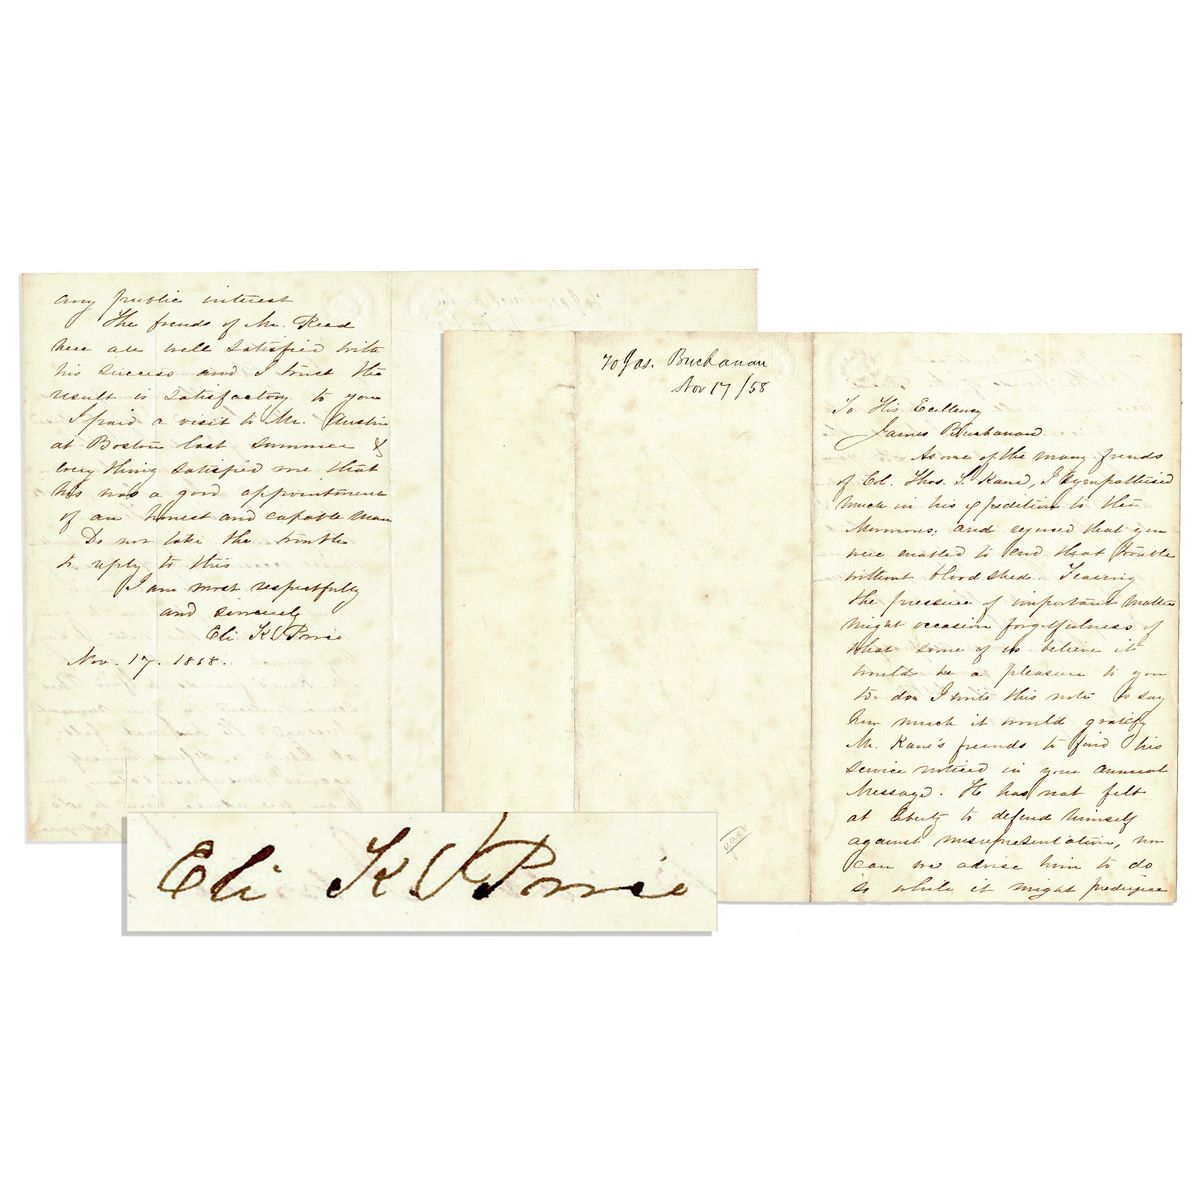 To Jas. Buchanan
Nov 17/58
To His Excellency
James Buchanan
As one of the many friends
of Col. Thos. L. Kane, I sympathised
much in his expedition to the
Mormons; and rejoiced that you
were enabled to end that trouble
without bloodshed. Fearing
the pressure of important matters
might occasion forgetfulness of
what some of us believe it
would be a pleasure to you
to do I write this note to say
how much it would gratify
Mr. Kane's friends to find his
service noticed in your annual
Message. He has not felt
at liberty to defend himself
against misrepresentation, nor
can we advise him to do
so while it might prejudice
any public interest
The friends of Mr. Reed
here are well satisfied with
his success and I trust the
result is satisfactory to you
I paid a visit to Mr. Austin
at Boston last summer &
every thing satisfied me that
his was a good appointment
of an honest and capable man
Do not take the trouble
to reply to this
I am most respectfully
and sincerely
Eli K Price
Nov. 17. 1858.
Eli K Price